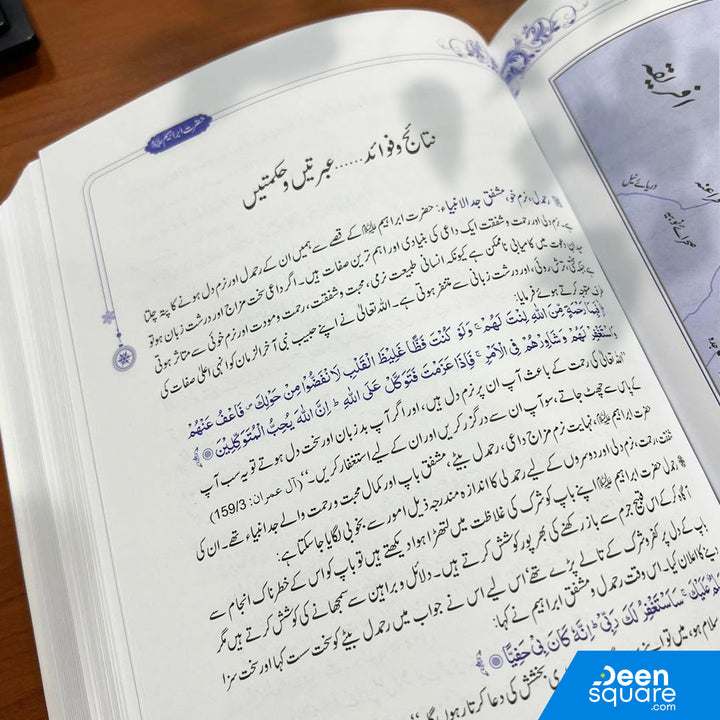 حضرت ابراہیم علیہ السلام
نتائج و فوائد...... عبرتیں و حکمتیں
رحمدل، نرم خو، مشفق جد الانبیاء: حضرت ابراہیم علیہ السلام کے قصے سے ہمیں ان کے رحمدل اور نرم دل ہونے کا پتہ چلتا
ہے۔ نرم دلی اور رحمت و شفقت ایک داعی کی بنیادی اور اہم ترین صفات ہیں۔ اگر داعی سخت مزاج اور درشت زبان ہو تو
میدان دعوت میں کامیابی ناممکن ہے کیونکہ انسانی طبیعت نرمی، محبت و شفقت، رحمت و مودت اور نرم خوئی سے متاثر ہوتی
ہے جبکہ سختی، ترش روئی، اور درشت زبانی سے متنفر ہوتی ہے۔ اللہ تعالیٰ نے اپنے حبیب نبی آخر الزمان کو انہی اعلیٰ صفات کی
طرف متوجہ کرتے ہوئے فرمایا:
﴿فَبِمَا رَحْمَةٍ مِّنَ اللّٰهِ لِنْتَ لَهُمْ ۚ وَلَوْ كُنْتَ فَظًّا غَلِيْظَ الْقَلْبِ لَا نْفَضُّوْا مِنْ حَوْلِكَ ۖ فَاعْفُ عَنْهُمْ
وَاسْتَغْفِرْ لَهُمْ وَشَاوِرْهُمْ فِي الْاَمْرِ ۚ فَاِذَا عَزَمْتَ فَتَوَكَّلْ عَلَى اللّٰهِ ۭ اِنَّ اللّٰهَ يُحِبُّ الْمُتَوَكِّلِيْنَ﴾
"اللہ تعالیٰ کی رحمت کے باعث آپ ان پر نرم دل ہیں، اور اگر آپ بد زبان اور سخت دل ہوتے تو یہ سب آپ
کے پاس سے چھٹ جاتے، سو آپ ان سے درگزر کریں اور ان کے لیے استغفار کریں۔" (آل عمران: 159/3)
حضرت ابراہیم علیہ السلام، نہایت نرم مزاج داعی، رحمدل بیٹے، مشفق باپ اور کمال محبت و رحمت والے جد انبیاء تھے۔ ان کی
شفقت، رحمت، نرم دلی اور دوسروں کے لیے رحمدلی کا اندازہ مندرجہ ذیل امور سے بخوبی لگایا جاسکتا ہے:
رحمدل حضرت ابراہیم علیہ السلام اپنے باپ کو شرک کی غلاظت میں لتھڑا ہوا دیکھتے ہیں تو باپ کو اس کے خطرناک انجام سے
آگاہ کر کے اس قبیح جرم سے باز رکھنے کی بھرپور کوشش کرتے ہیں۔ دلائل و براہین سے سمجھانے کی کوشش کرتے ہیں مگر
باپ کے دل پر کفر و شرک کے تالے پڑے تھے اس لیے اس نے جواب میں رحمدل بیٹے کو سخت سست کہا اور سخت سزا
دینے کا اعلان کیا۔ اس وقت رحمدل و مشفق ابراہیم نے کہا:
عَلَيْكَ ۚ سَاَسْتَغْفِرُ لَكَ رَبِّيْ ۭ اِنَّهٗ كَانَ بِيْ حَفِيًّا﴾
سلام ہو، میں تو اپنے بخشش کی دعا کرتا رہوں گا
افریقہ
دریائے نیل
صحرائے نوبیہ
Deen
square
.com